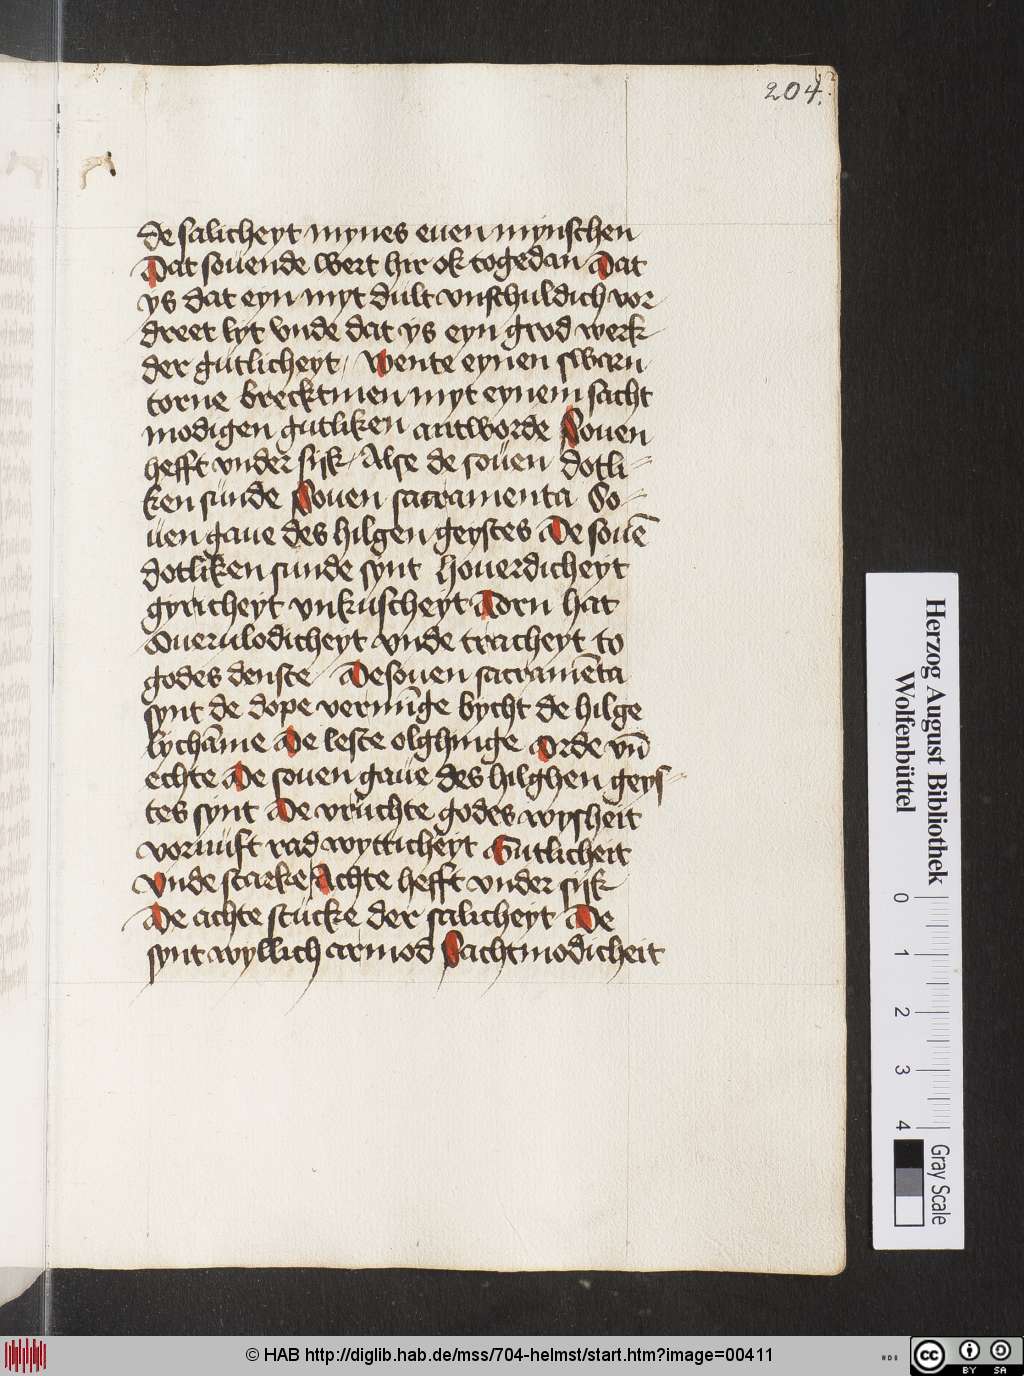 204.
de salicheyt mynes euen mynschen
Dat souende wert hir ok togedan Dat
ys dat eyn myt dult vnschuldich vor
dreet lyt vnde dat ys eyn grod werk
der gutlicheyt / Wente eynen swarn
torne brecktmen myt eynem sacht
modigen gutliken antworde Souen
hefft vnder sijk / Alse de souen dotli-
ken sunde Souen sacramenta So-
uen gaue des hilgen geystes De souē
dotliken sunde synt houerdicheyt
gyricheyt vnkuscheyt Torn hat
Ouerulodicheyt vnde tracheyt to
godes denste / De souen sacramēta
synt de dope vermīge bycht de hilge
lychāme De leste olghinge Orde vn̄
echte De souen gaue des hilghen geys-
tes synt De vruchte godes wysheit
vornuft rad wytticheyt Gutlicheit
Vnde starke / Achte hefft vnder sijk
De achte stucke der salicheyt De
synt wyllich armod Sachtmodicheit
Herzog August Bibliothek
Wolfenbüttel
0 1 2 3 4
Gray Scale
© HAB http://diglib.hab.de/mss/704-helmst/start.htm?image=00411
HAB
cc BY SA